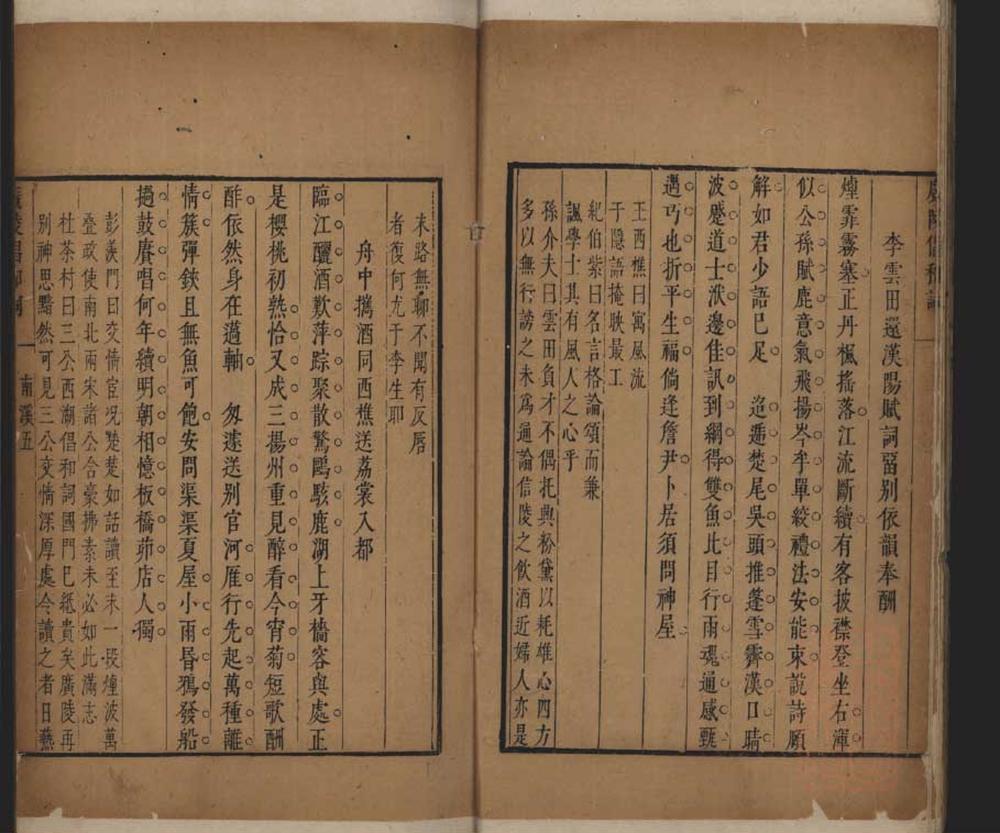 廣陵倡和詞
李雲田還漢陽賦詞畱別依韻奉酬
煙霏霧塞正丹楓搖落江流斷續有客披襟登坐右渾
似公孫賦鹿意氣飛揚岑牟單絞禮法安能束說詩頤
解如君少語巳足 迢遞楚尾吳頭推蓬雪霽漢口晴
波蹙道士洑邊佳訊到網得雙魚比目行雨魂通感甄
遇巧也折平生福倘逢詹尹卜居須問神屋
王西樵曰寓風流
于隱語掩映最工
紀伯紫曰名言格論頌而兼
諷學士其有風人之心乎
孫介夫曰雲田負才不偶托興粉黛以耗雄心四方
多以無行謗之未爲通論信陵之飲酒近婦人亦是
末路無聊不聞有反唇
者復何尤于李生耶
舟中攜酒同西樵送荔裳入都
臨江釃酒歎萍踪聚散驚鷗駭鹿湖上牙檣容與處正
是櫻桃初熟恰又成三揚州重見醉看今宵菊短歌酬
酢依然身在邁軸 匆遽送別官河雁行先起萬種離
情簇彈鋏且無魚可飽安問渠渠夏屋小雨昏鴉發船
撾鼓賡唱何年續明朝相憶板橋茆店人獨
彭羨門曰交情宦况楚楚如話讀至末一段煙波萬
疊政使南北兩宋諸公合豪拂素未必如此滿志
杜茶村曰三公西湖倡和詞國門巳紙貴矣廣陵再
別神思黯然可見三公交情深厚處今讀之者日燕
廣陵倡和詞
南溪五